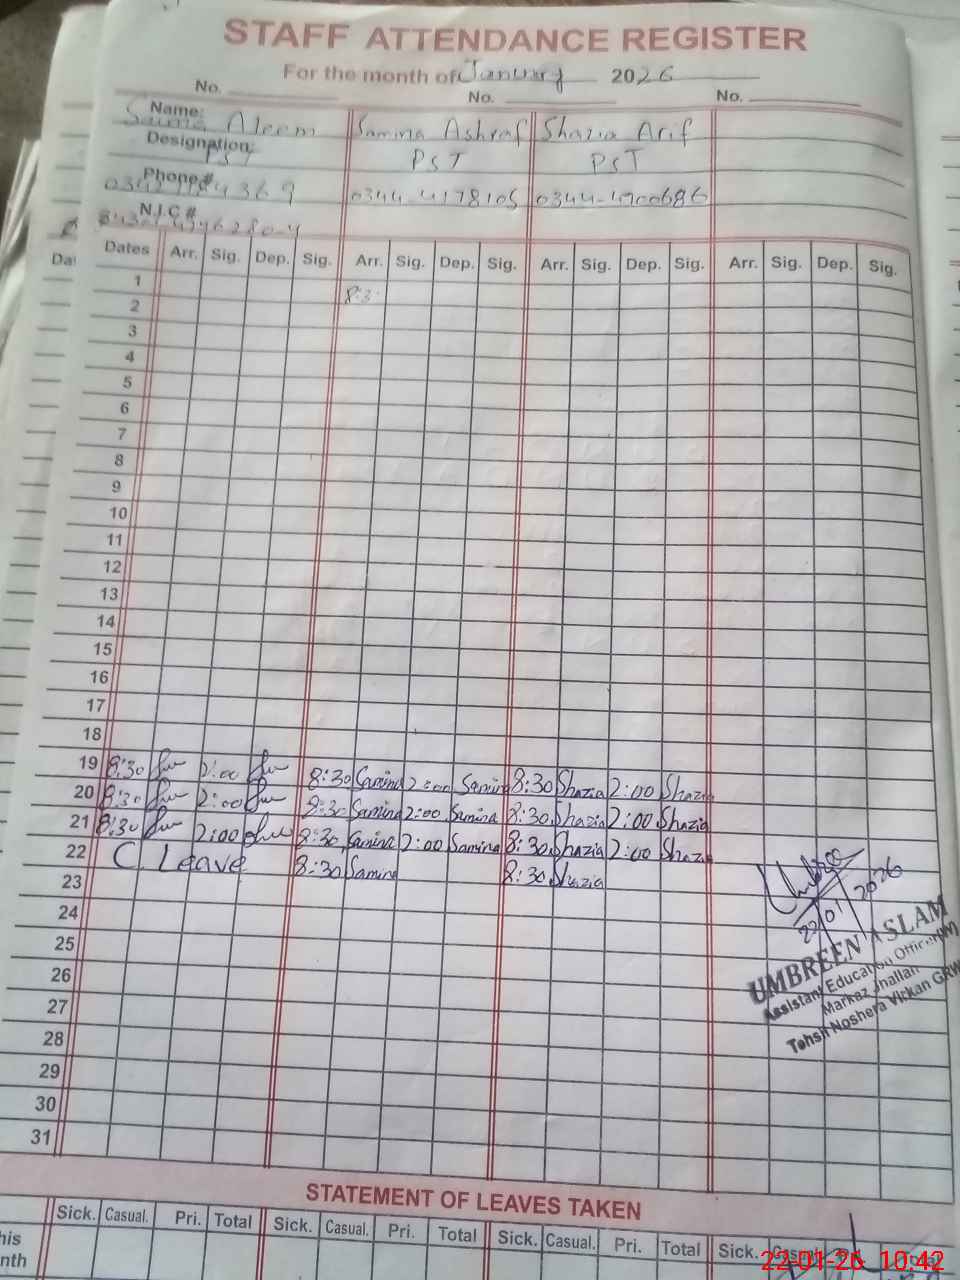 STAFF ATTENDANCE REGISTER
For the month of January 2026
No. No. No.
Name: Saima Aleem Samina Ashraf Shazia Arif
Designation: PST PST PST
Phone# 0344-4178105
N.I.C #
Dates Arr. Sig. Dep. Sig. Arr. Sig. Dep. Sig. Arr. Sig. Dep. Sig. Arr. Sig. Dep. Sig.
1
2 8:3
3
4
5
6
7
8
9
10
11
12
13
14
15
16
17
18
19 8:30 2:00 8:30 Samina 2:00 Samina 8:30 Shazia 2:00 Shazia
20 8:30 2:00 8:30 Samina 2:00 Samina 8:30 Shazia 2:00 Shazia
21 8:30 2:00 8:30 Samina 2:00 Samina 8:30 Shazia 2:00 Shazia
22 C. Leave 8:30 Samina 8:30 Shazia
23
24
25
26
27
28
29
30
31
22/01/2026
UMBREEN ASLAM
Assistant Education Officer
Markaz Jhallan
Tehsil Noshera Virkan GRW
STATEMENT OF LEAVES TAKEN
Sick. Casual. Pri. Total Sick. Casual. Pri. Total Sick. Casual. Pri. Total Sick. Casual. Pri. Total
his
nth
22-01-26 10:42